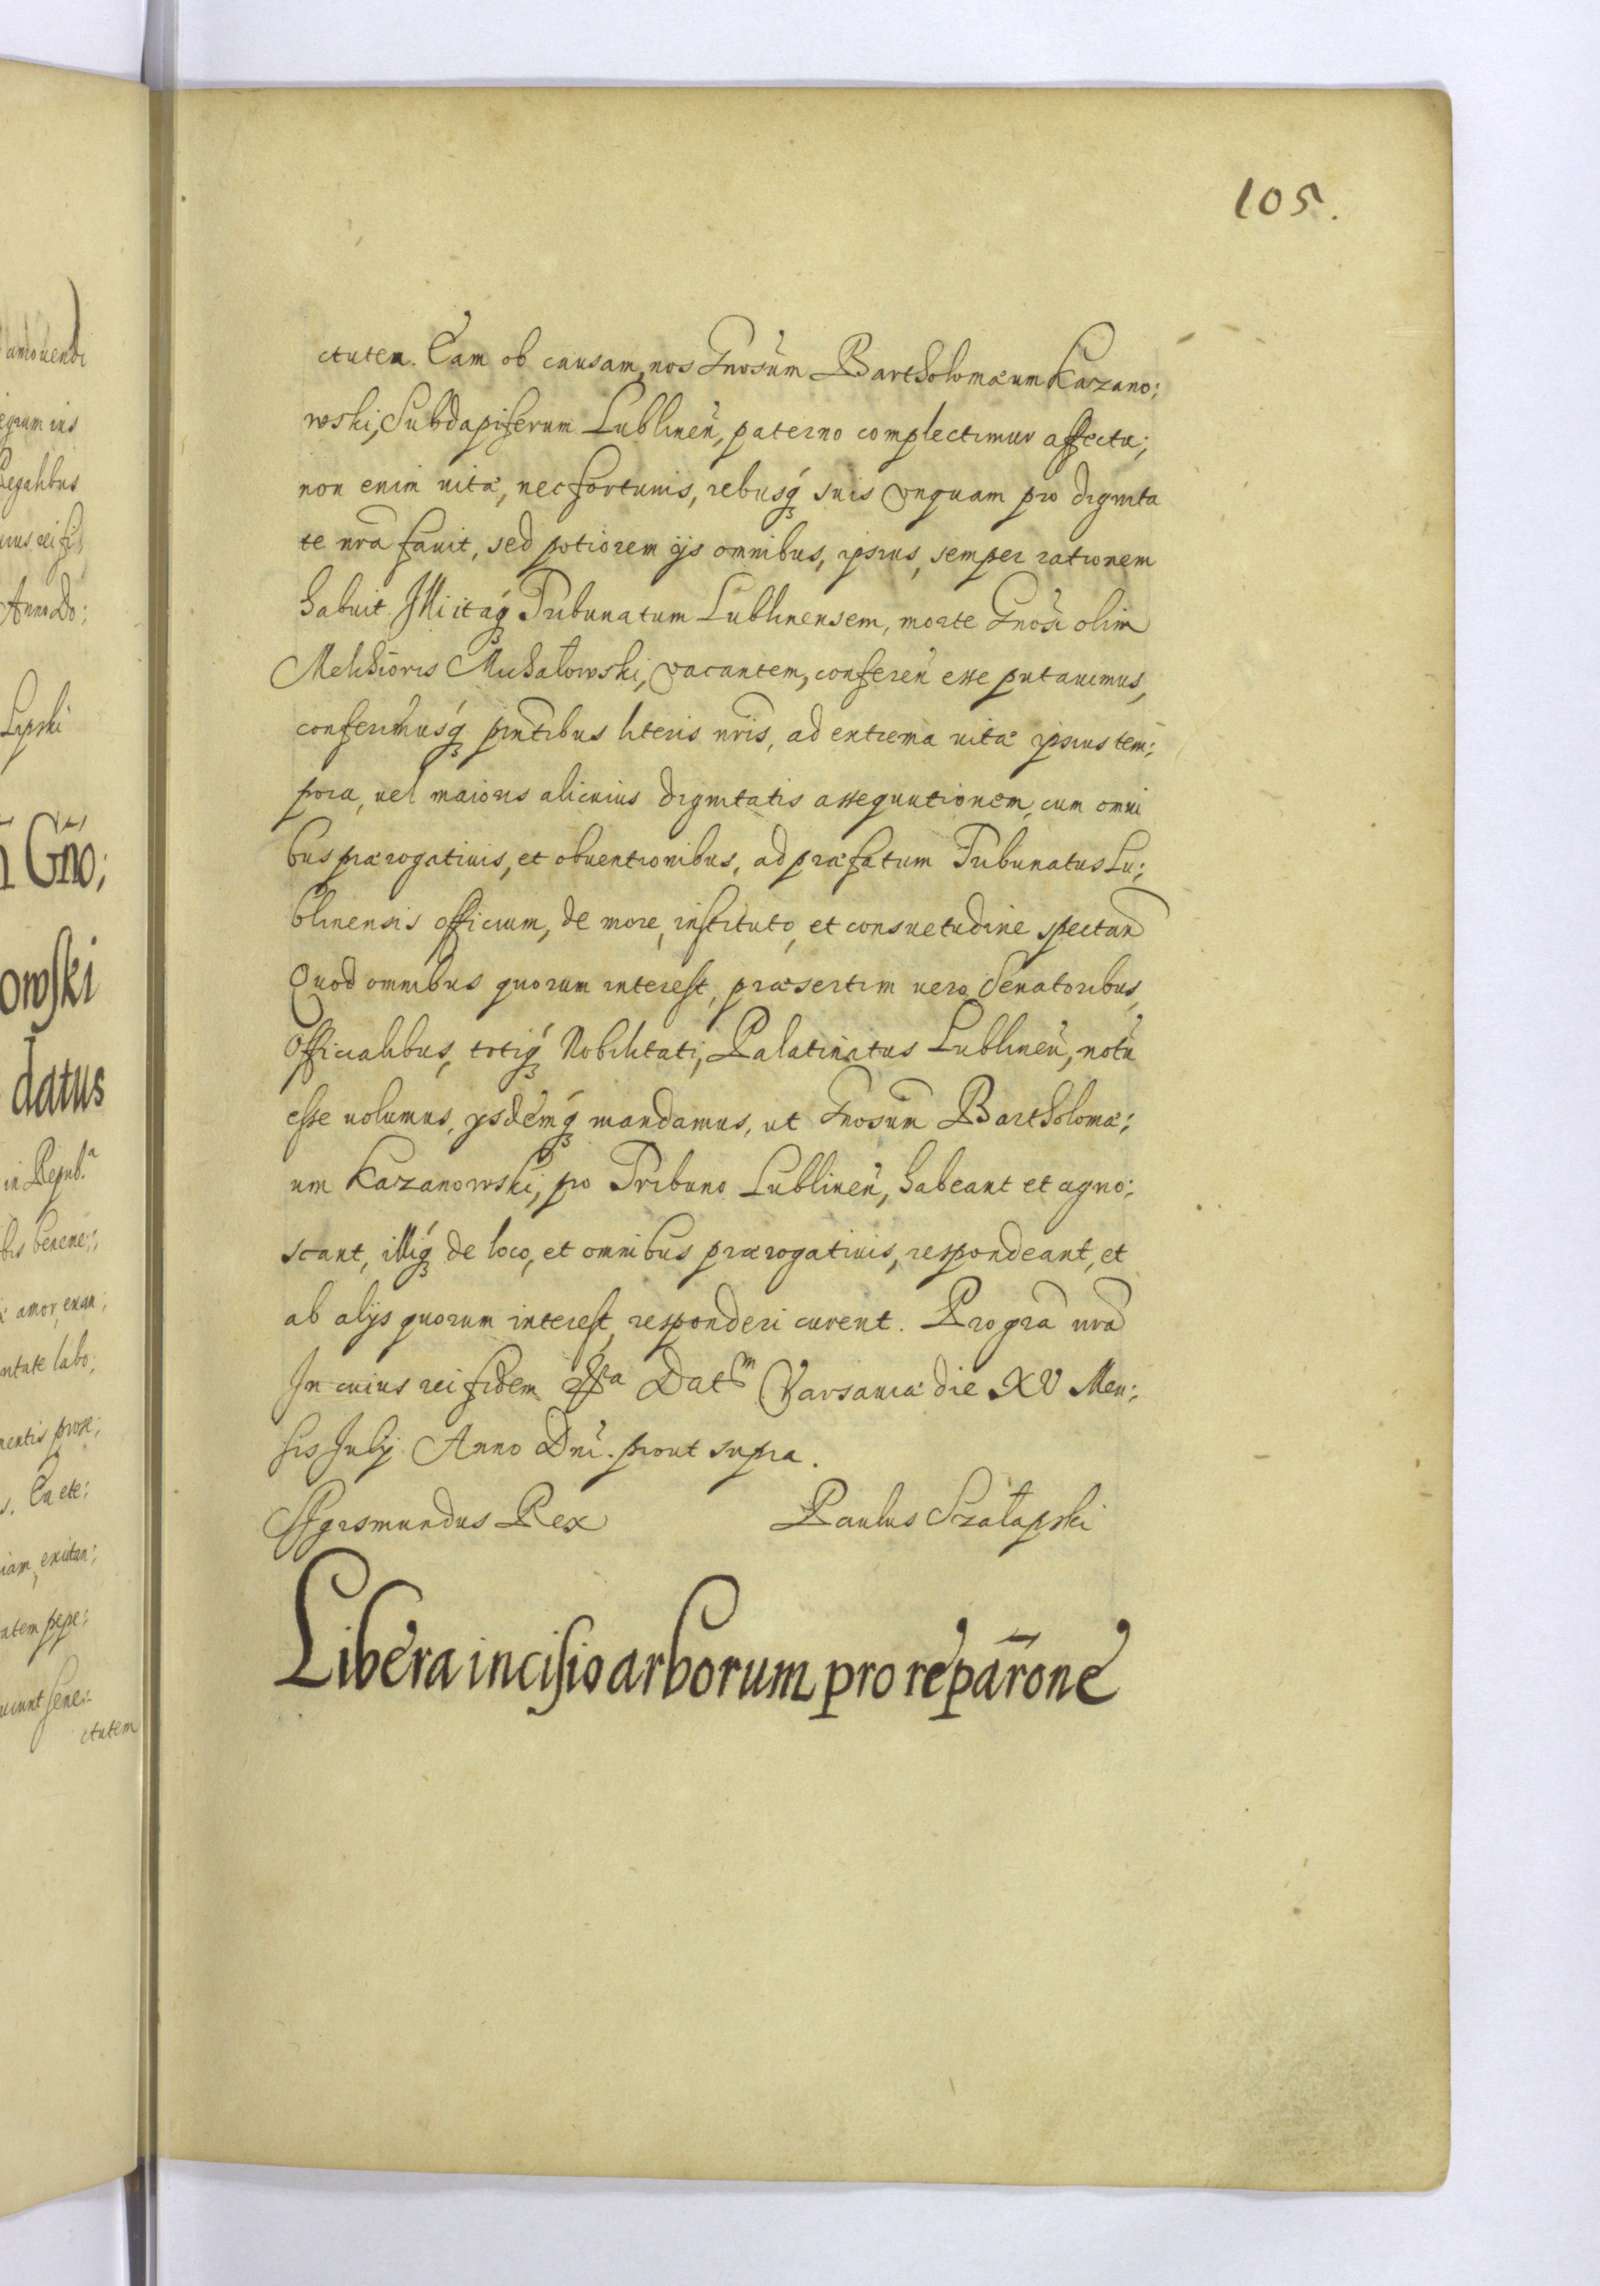 105.
ctuten. Eam ob causam, nos Gnosum Bartholomæum Kazano:
wski, Subdapiferum Lublinen̄, paterno complectimur affectu;
non enim uitæ, nec fortunis, rebusq́ʒ suis vnquam pro dignita
te nr̄a fauit, sed potiorem ijs omnibus, ipsius, semper rationem
habuit. Illi itaq́ʒ Tribunatum Lublinensem, morte Gnosi olim
Melchioris Michałowski, vacantem, conferen̄ esse putauimus,
conferimusq́ʒ pn̄tibus literis nr̄is, ad extrema uitæ ipsius tem:
pora, uel maioris alicuius dignitatis assequutionem, cum omni
bus prærogatiuis, et obuentionibus, ad præfatum Tribunatus Lu:
blinensis officium, de more, instituto, et consuetudine spectan̄
Quod omnibus quorum interest, præsertim uero Senatoribus,
Officialibus, totiq́ʒ Nobilitati, Palatinatus Lublinen̄, notū
esse uolumus, ysdemq́ʒ mandamus, ut Gnosum Bartholomæ:
um Kazanowski, pro Tribuno Lublinen̄, habeant et agno:
scant, illiq́ʒ de loco, et omnibus prærogatiuis, respondeant, et
ab alijs quorum interest, responderi curent. Pro gr̄a nr̄a
In cuius rei fidem Datm Varsauiæ die XV Men:
sis Julij Anno Dn̄i. prout supra.
Sigismundus Rex Paulus Szałapski
Libera incisio arborum pro reparōne
amouendi
egium ius
Regalibus
uius rei fi
Anno Do:
Lipski
Gn̄o;
owski
datus
in Repub.a
bis beneme:;
amor, exan:
ntute labo:
mentis prose;
s. Ea ete:
iam, excitan:
atem pepe:
ucunt sene:
ctutem